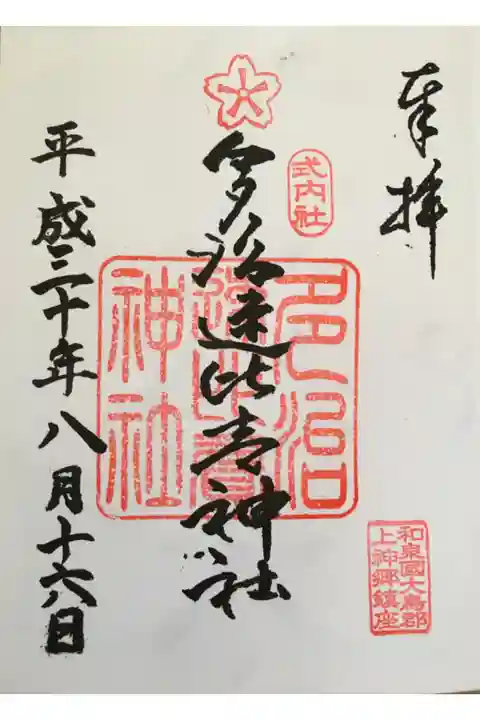 奉拝
式内社
多治速比売神社
多治
速比賣
神社
平成三十年八月十六日
和泉國大鳥郡
上神郷鎮座